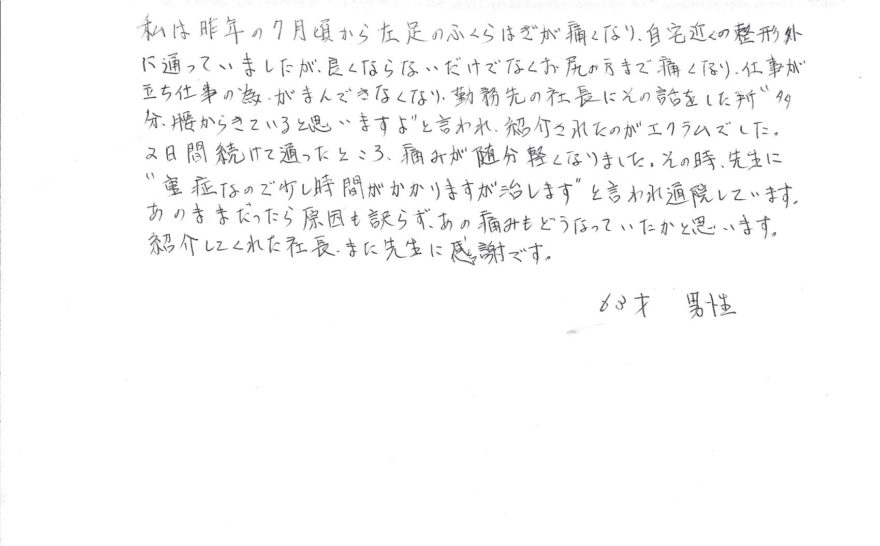 私は昨年の7月頃から左足のふくらはぎが痛くなり、自宅近くの整形外
に通っていましたが、良くならないだけでなくお尻の方まで痛くなり、仕事が
立ち仕事の為、がまんできなくなり、勤務先の社長にその話をした所"多
分、腰からきていると思いますよ"と言われ、紹介されたのがエクラムでした。
2日間続けて通ったところ、痛みが随分軽くなりました。その時、先生に
"重症なので少し時間がかかりますが治します"と言われ通院しています。
あのままだったら原因も訳らず、あの痛みもどうなっていたかと思います。
紹介してくれた社長、また先生に感謝です。
63才 男性